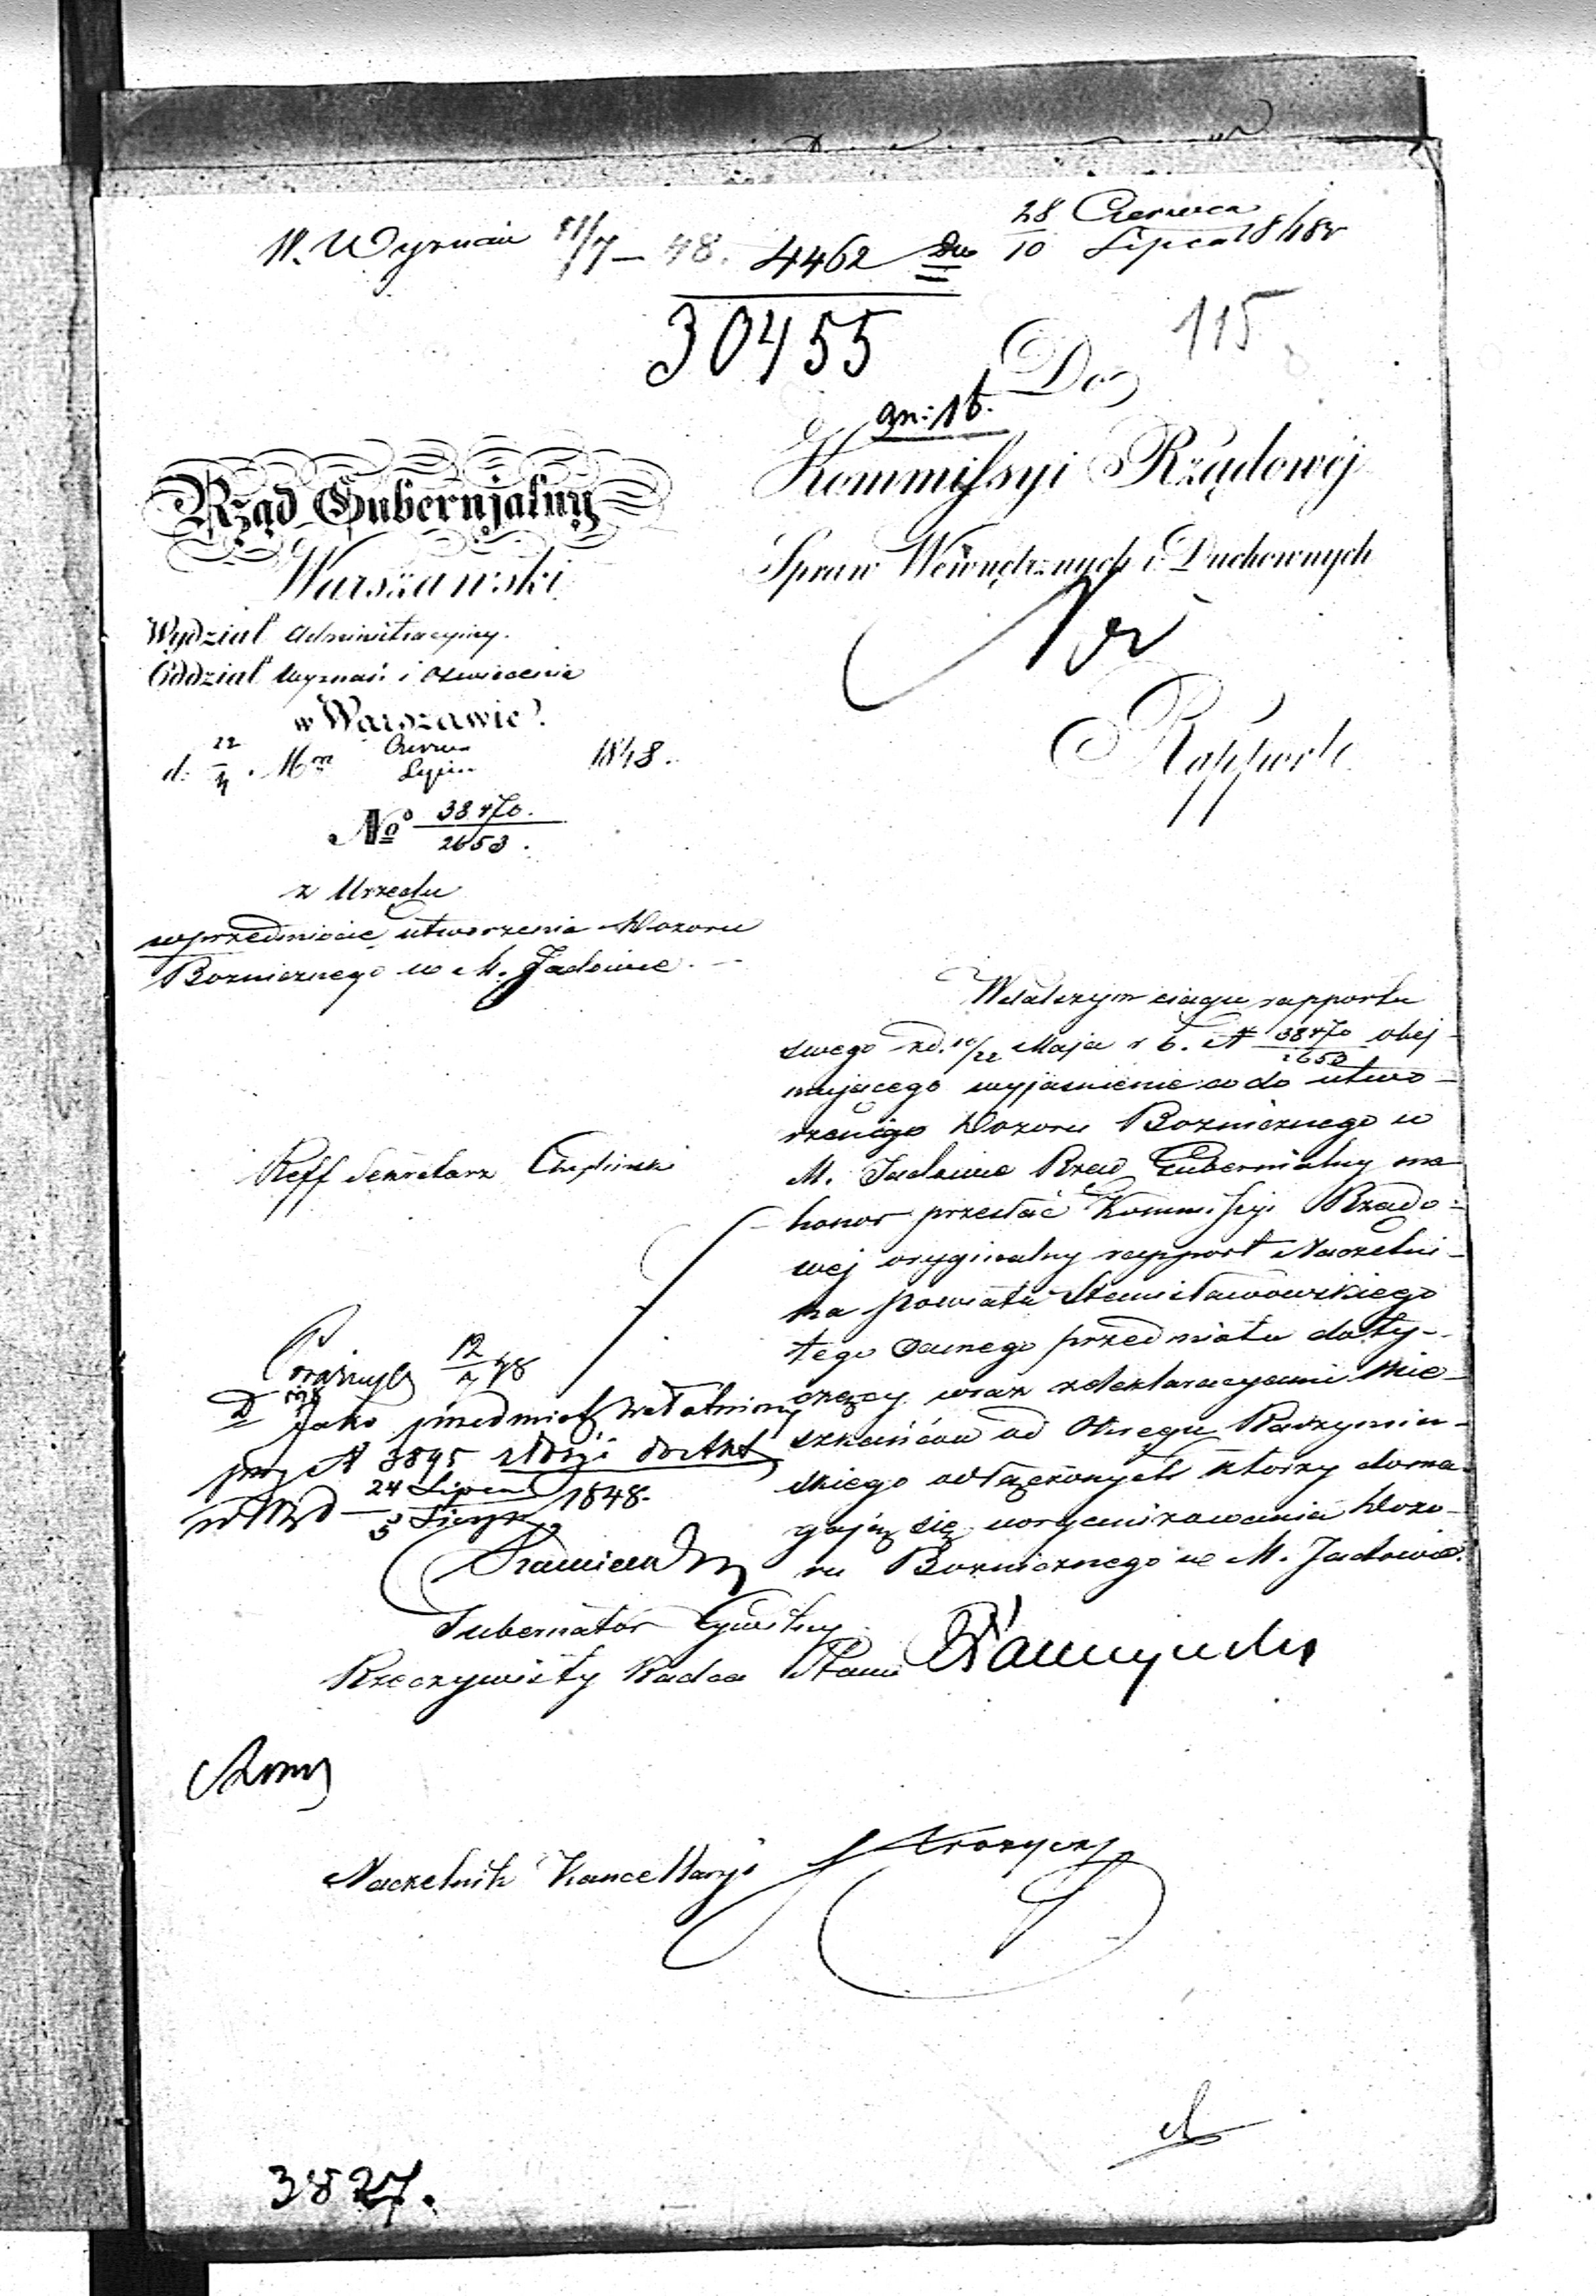 W. Wyznań 11/7 – 48. 4462 28 Czerwca
10 Lipca 1848 r
30455
115
Do
gn: 16.
Kommissyi Rządowéj
Spraw Wewnętrznych i Duchownych
Rząd Gubernjalny
Warszawski
Wydział Administracyjny.
Oddział Wyznań i Oświecenia
w Warszawie
d: 22/4 Mca Czerwca
Lipca 1848.
Rapport
No 38470.
2653.
z Urzędu
w przedmiocie utworzenia Dozoru
Bozniczego w M. Jadowie.
W dalszym ciągu rapportu
swego z d. 10/22 Maja r b. N 38470/2653 obej-
mującego wyjaśnienie co do utwo-
rzenia Dozoru Bozniczego w
M. Jadowie Rząd Gubernialny ma
Reff Sekretarz
honor przesłać Kommissyi Rządo-
wej oryginalny rapport Naczelni-
ka Powiatu Stanisławowskiego
tego samego przedmiotu doty-
czący wraz z deklaracyami Mie-
szkańców od Okręgu Radzymiń-
skiego odłączonych którzy doma-
gają się uorganizowania Dozo-
ru Bozniczego w M. Jadowie.
12/7 48
Jako przedmiot załatwiony
przy N 3895 złożyć do Akt
24 Lipca
5 Sierp 1848.
Gubernator Cywilny
Rzeczywisty Radca Stanu
Naczelnik Kancellaryi
3827.